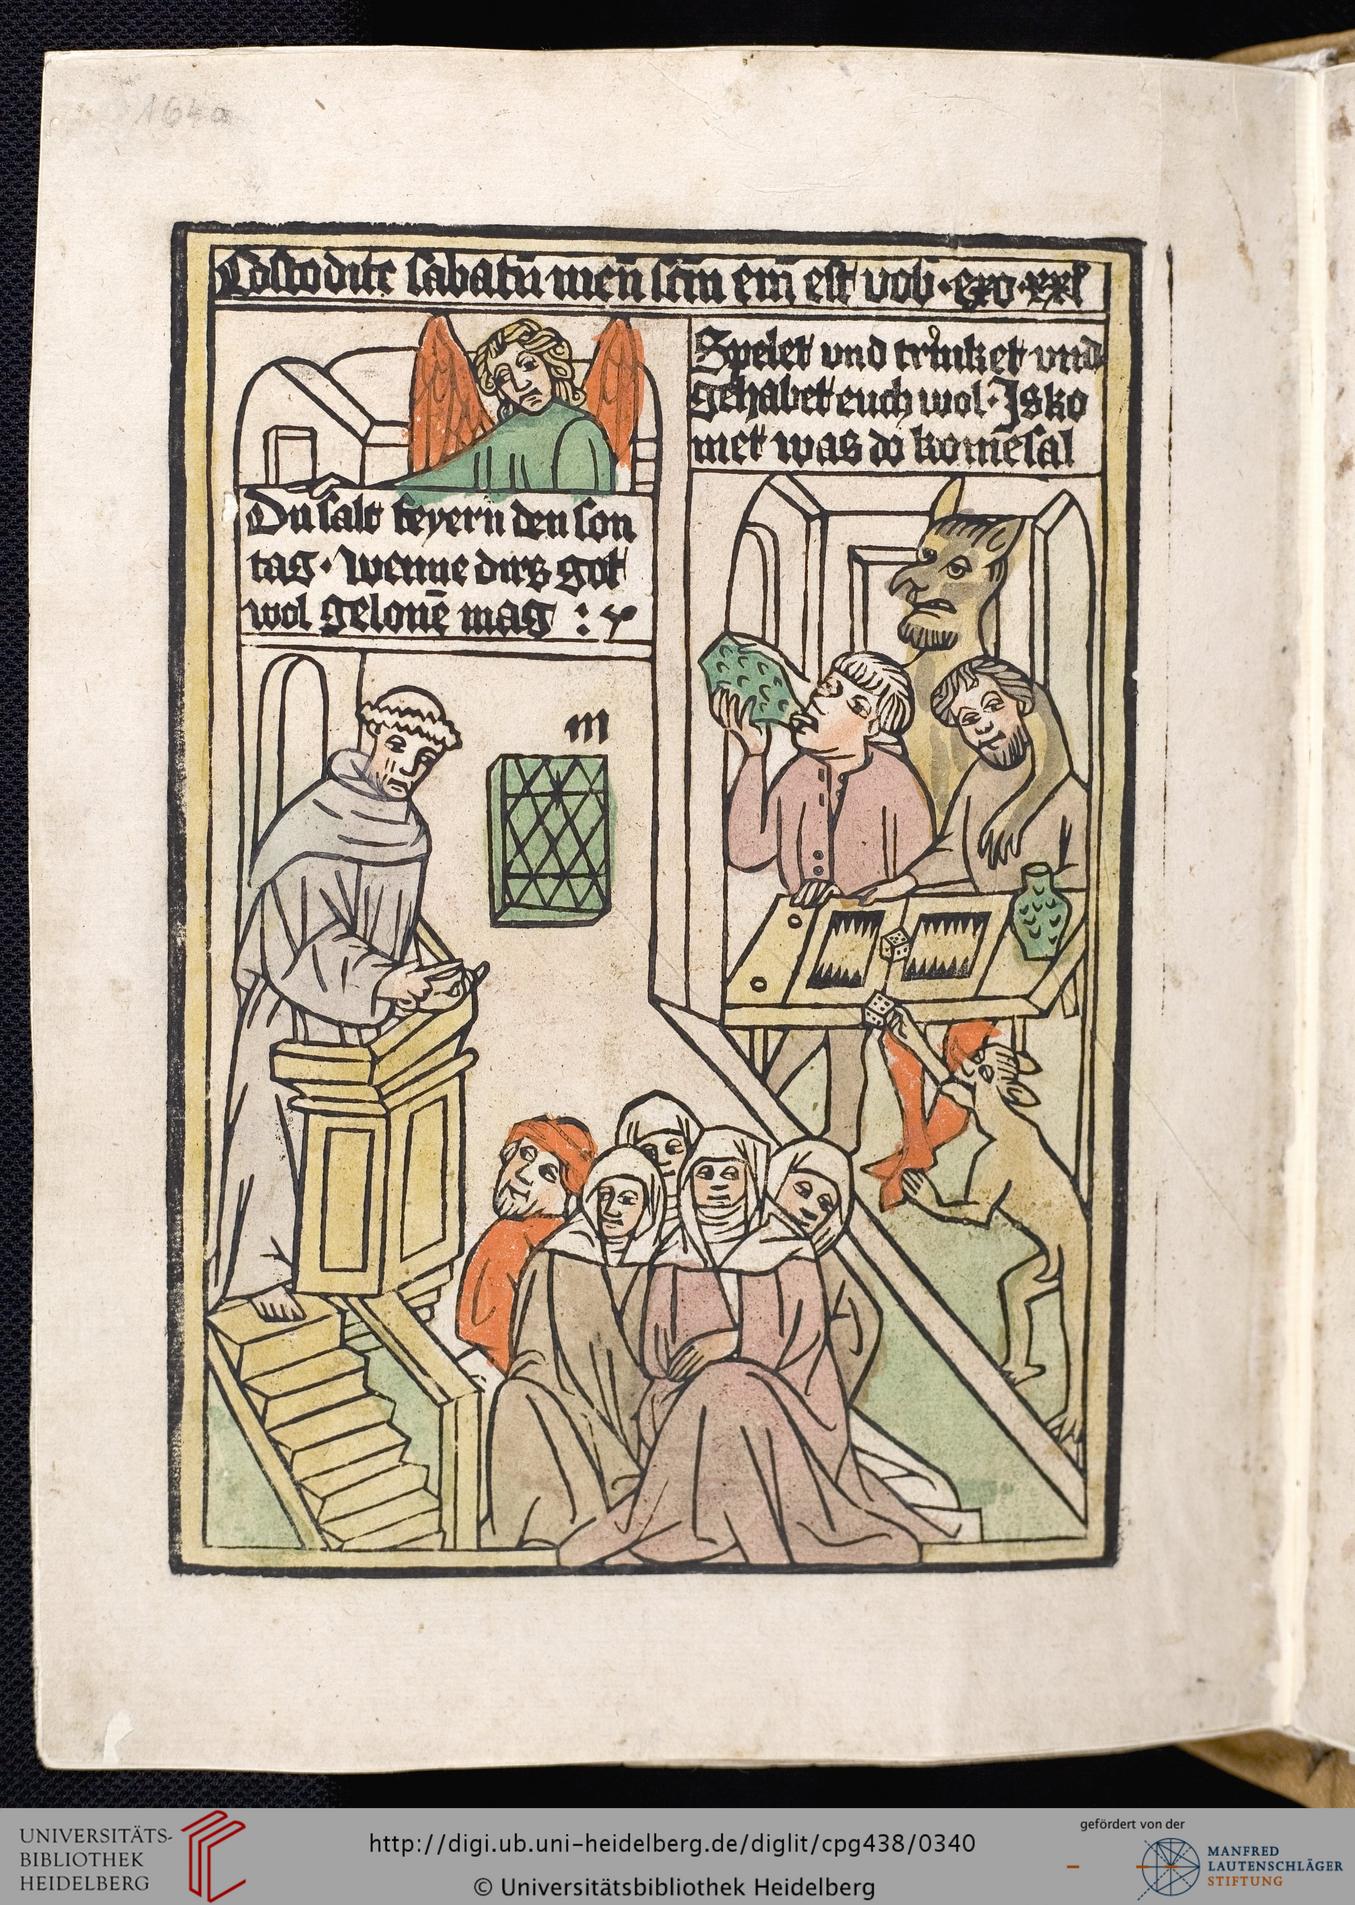 164a
Costodite sabatū meū scm̄ em̄ est vob · exo · xxxi
Du salt feyern den son
tag · wenne dirs got
wol gelonē mag :
Spelet vnd trinket vnd
gehabet euch wol · Is ko
met was do kome sal
m
UNIVERSITÄTS-
BIBLIOTHEK
HEIDELBERG
http://digi.ub.uni-heidelberg.de/diglit/cpg438/0340
© Universitätsbibliothek Heidelberg
gefördert von der
MANFRED
LAUTENSCHLÄGER
STIFTUNG